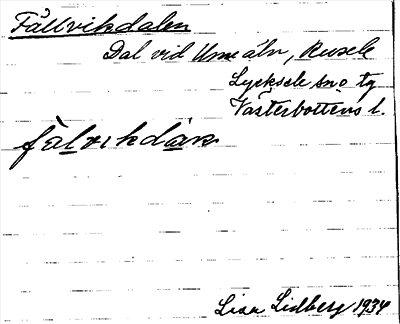 Fällvikdalen
Dal vid Ume älv, Rusele
Lycksele sn o tg
Västerbottens l.
fä̀lvikdàn
Lisa Lidberg 1934